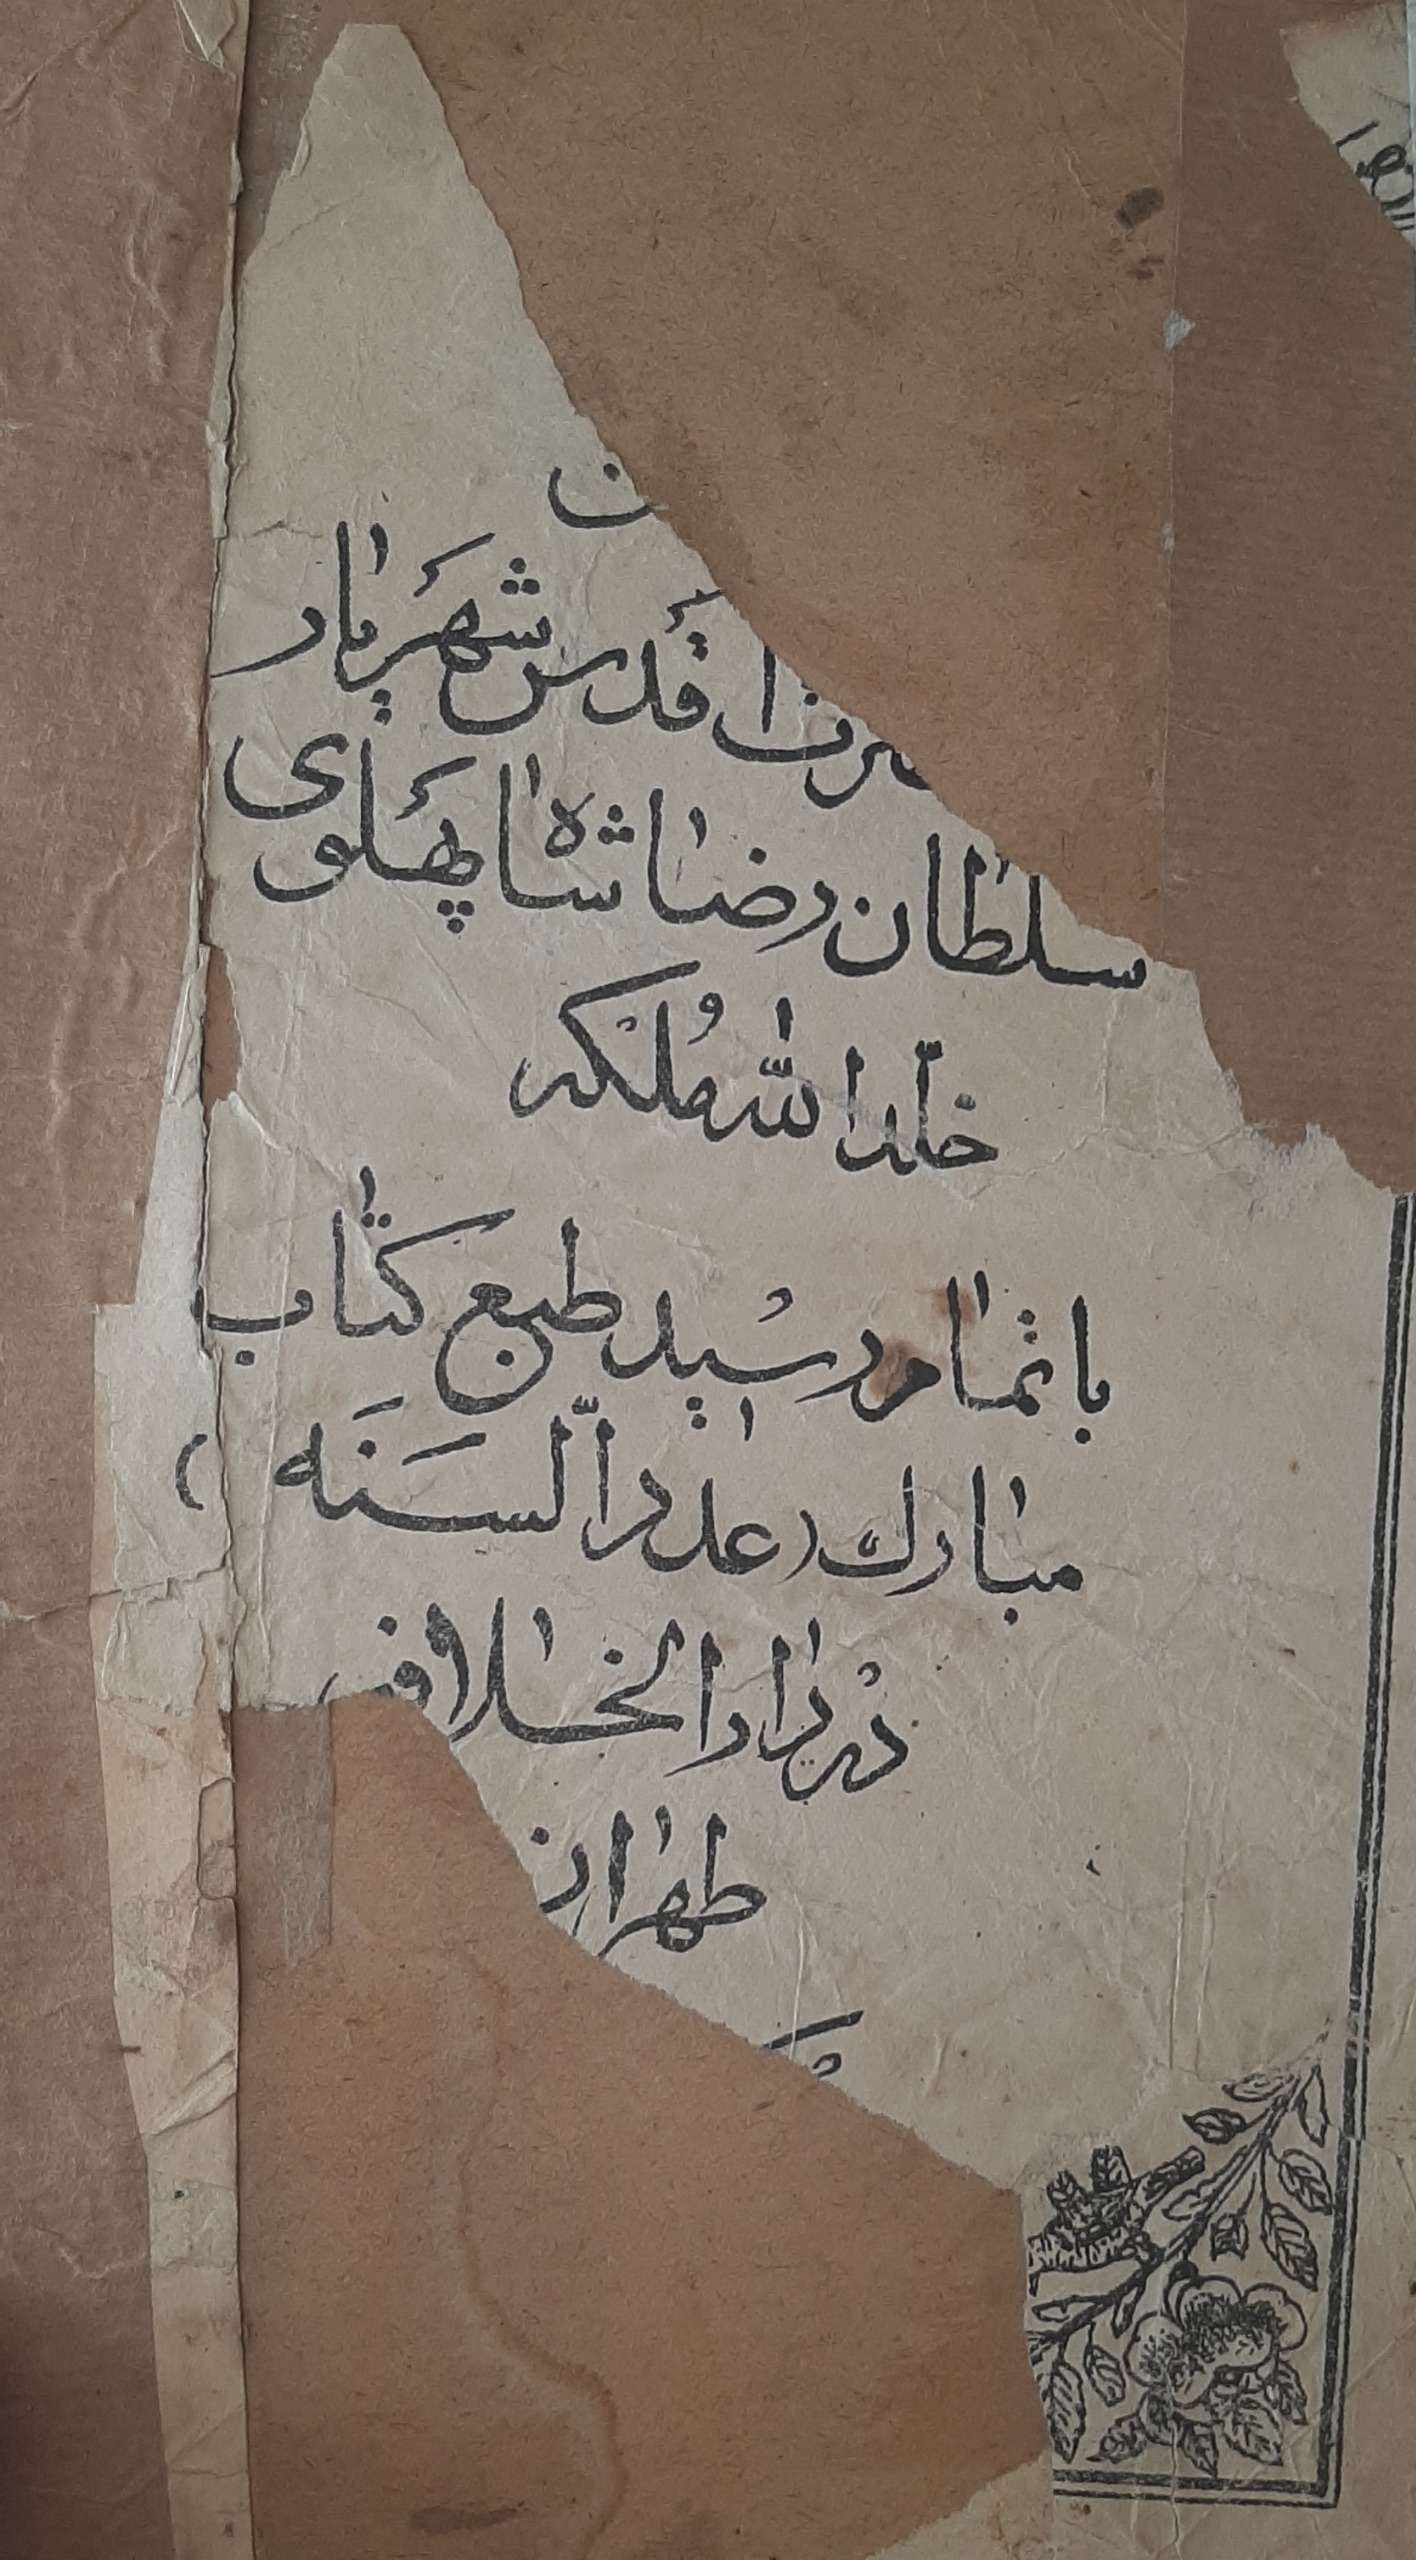 اقدس شهریار
سلطان رضا شاه پهلوی
خلّد الله مُلکه
باتمام رسید طبع کتاب
مبارك (علد درالسَنَه)
در دار الخلافه
طهران